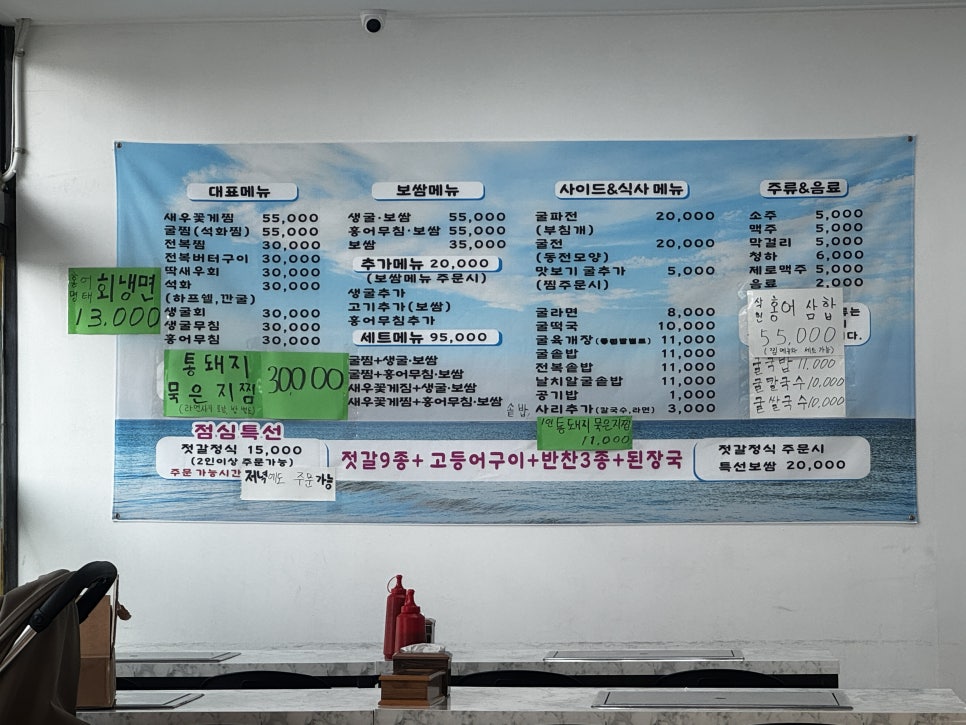 대표메뉴
새우꽃게찜 55,000
굴찜(석화찜) 55,000
전복찜 30,000
전복버터구이 30,000
딱새우회 30,000
석화 30,000
(하프쉘,깐굴)
생굴회 30,000
생굴무침 30,000
홍어무침 30,000
홍어
명태
회냉면
13.000
통돼지
묵은지찜
300,00
보쌈메뉴
생굴·보쌈 55,000
홍어무침·보쌈 55,000
보쌈 35,000
추가메뉴 20,000
(보쌈메뉴 주문시)
생굴추가
고기추가(보쌈)
홍어무침추가
세트메뉴 95,000
굴찜+생굴·보쌈
굴찜+홍어무침·보쌈
새우꽃게찜+생굴·보쌈
새우꽃게찜+홍어무침·보쌈
사이드&식사 메뉴
굴파전 20,000
(부침개)
굴전 20,000
(동전모양)
맛보기 굴추가 5,000
(찜주문시)
굴라면 8,000
굴떡국 10,000
굴육개장 11,000
굴솥밥 11,000
전복솥밥 11,000
날치알굴솥밥 11,000
공기밥 1,000
솥밥, 사리추가(칼국수,라면) 3,000
1인 통돼지 묵은지찜
11,000
주류&음료
소주 5,000
맥주 5,000
막걸리 5,000
청하 6,000
제로맥주 5,000
음료 2,000
홍어 삼합
55,000
굴국밥 11.000
굴칼국수 10,000
굴쌀국수 10,000
점심특선
젓갈정식 15,000
(2인이상 주문가능)
주문 가능시간
저녁에도 주문가능
젓갈9종+고등어구이+반찬3종+된장국
젓갈정식 주문시
특선보쌈 20,000